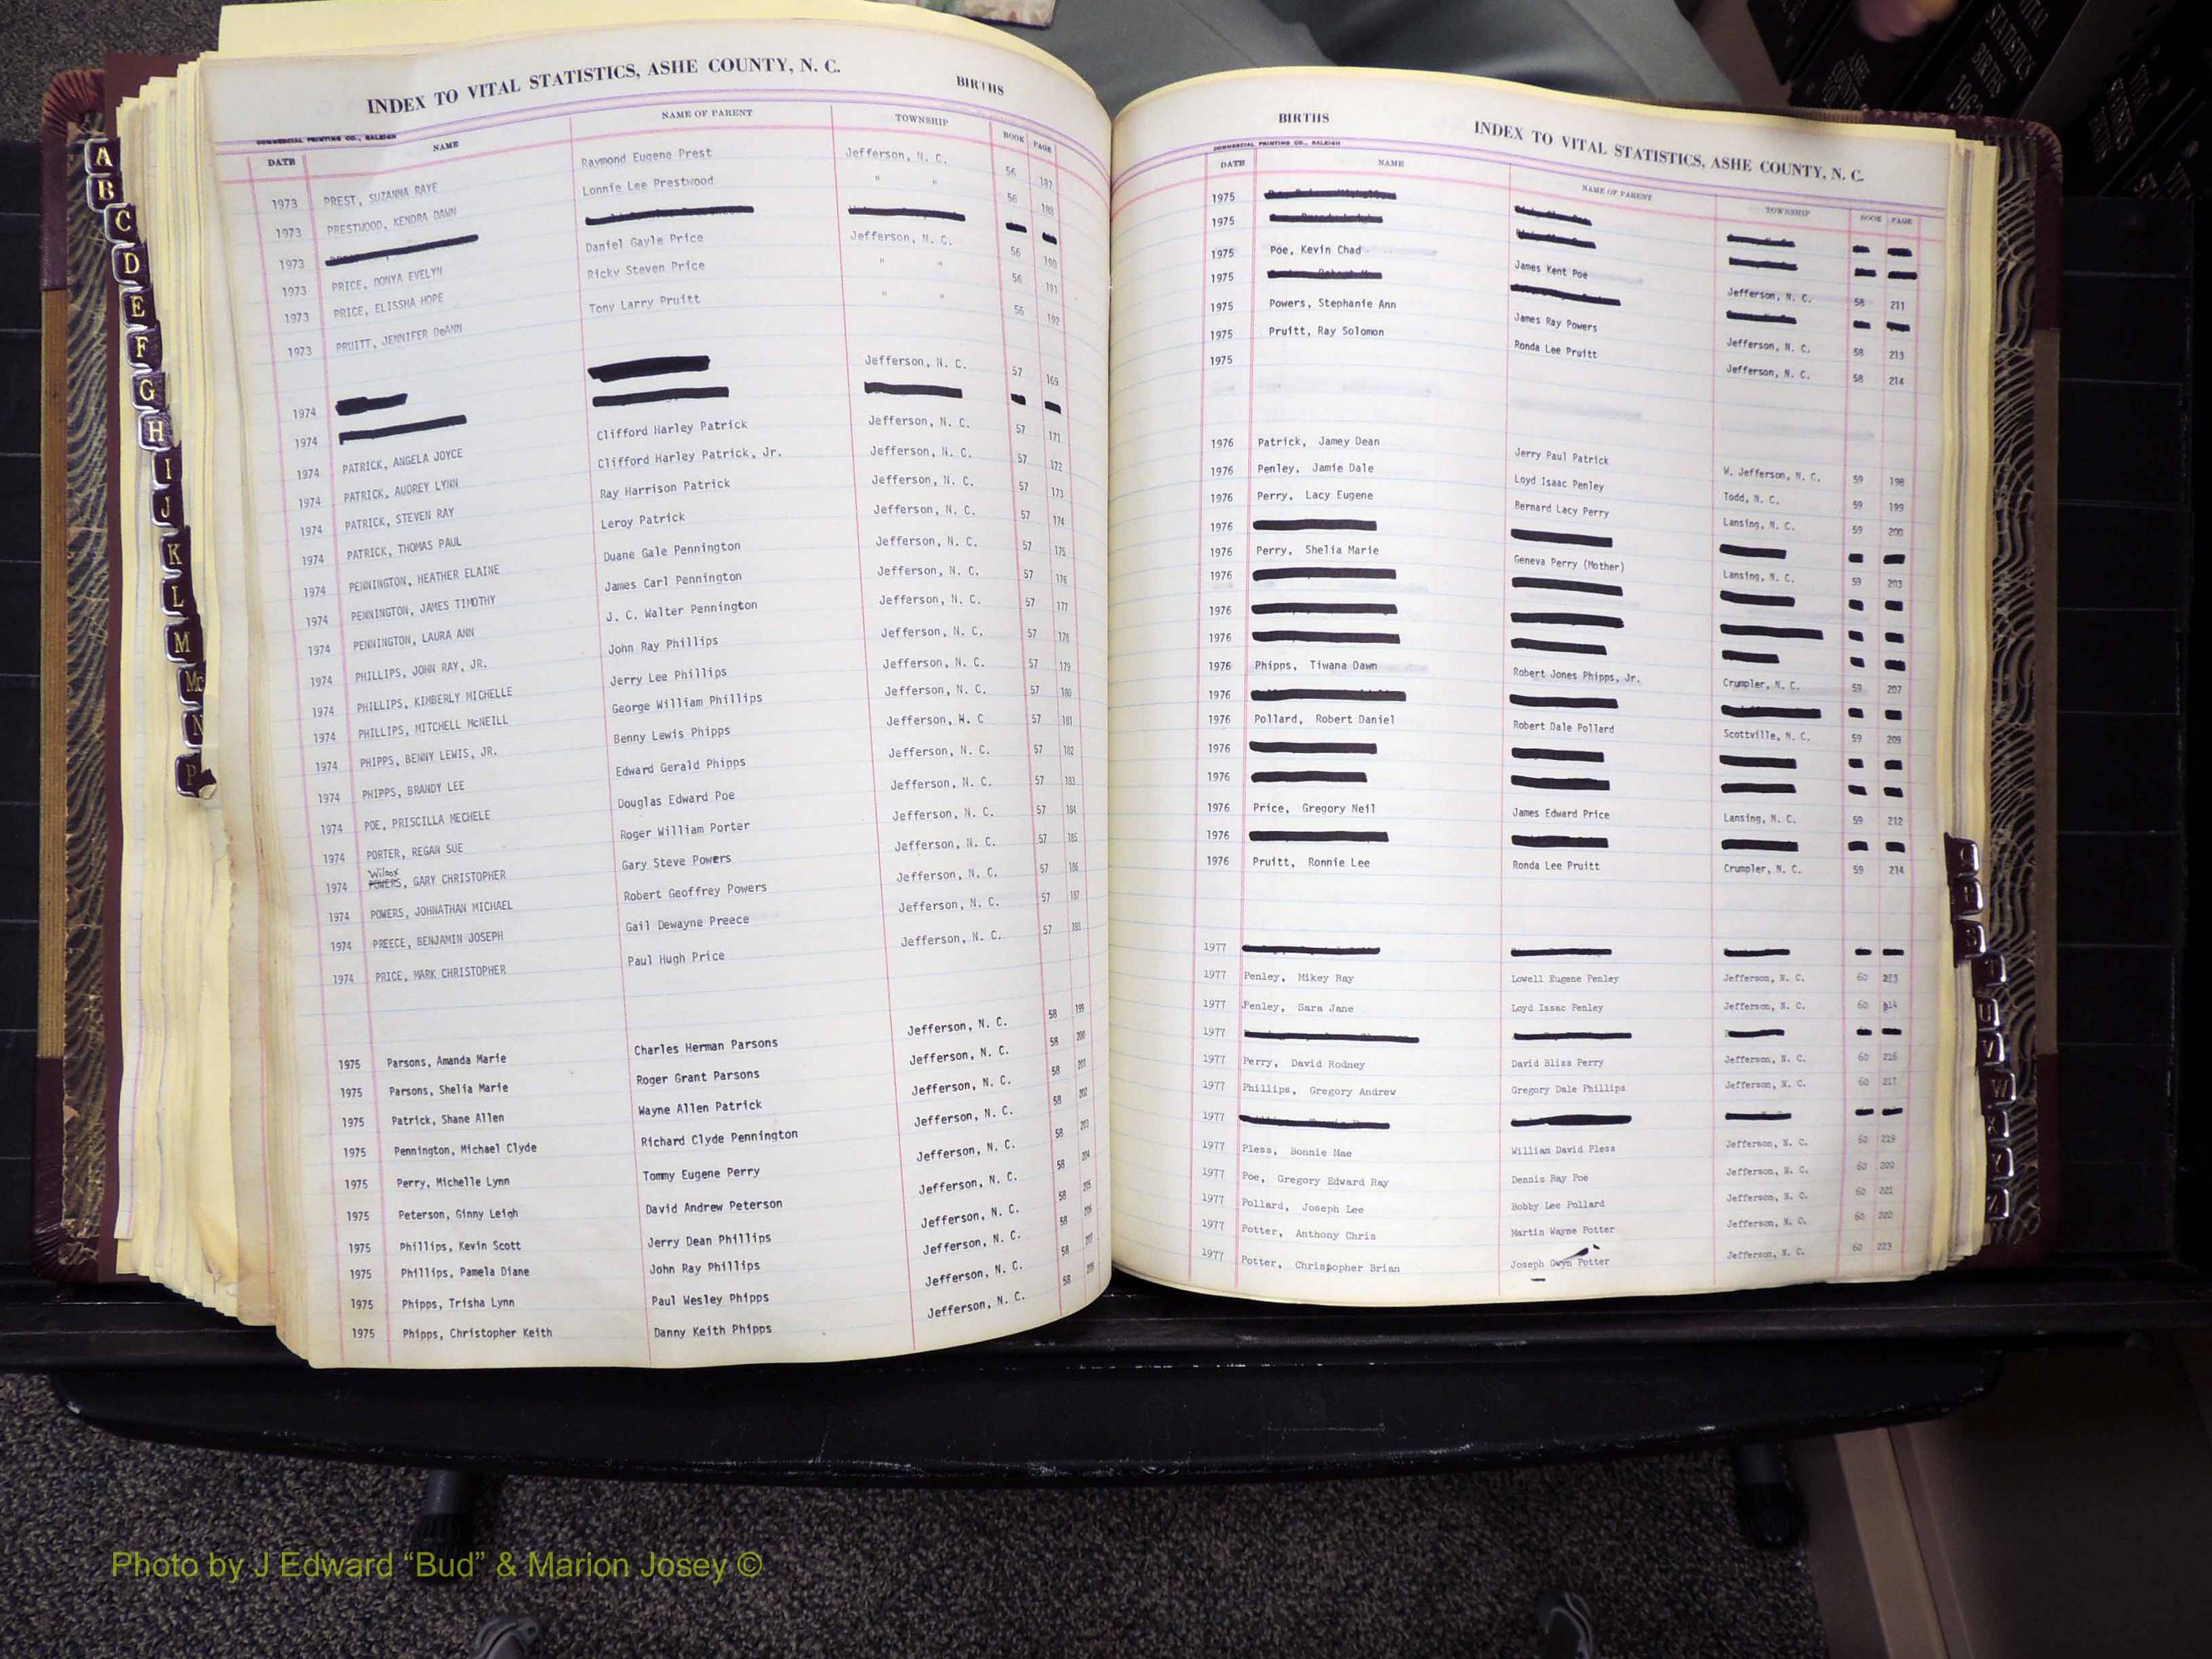 INDEX TO VITAL STATISTICS, ASHE COUNTY, N. C. BIRTHS
COMMERCIAL PRINTING CO., RALEIGH
DATE NAME NAME OF PARENT TOWNSHIP BOOK PAGE
1973 PREST, SUZANNA RAYE Raymond Eugene Prest Jefferson, N. C. 56 187
1973 PRESTWOOD, KENDRA DAWN Lonnie Lee Prestwood " " 56 188
1973
1973 PRICE, DONYA EVELYN Daniel Gayle Price Jefferson, N. C. 56 190
1973 PRICE, ELISSHA HOPE Ricky Steven Price " " 56 191
1973 PRUITT, JENNIFER DeANN Tony Larry Pruitt " " 56 192
1974 Jefferson, N. C. 57 169
1974
1974 PATRICK, ANGELA JOYCE Clifford Harley Patrick Jefferson, N. C. 57 171
1974 PATRICK, AUDREY LYNN Clifford Harley Patrick, Jr. Jefferson, N. C. 57 172
1974 PATRICK, STEVEN RAY Ray Harrison Patrick Jefferson, N. C. 57 173
1974 PATRICK, THOMAS PAUL Leroy Patrick Jefferson, N. C. 57 174
1974 PENNINGTON, HEATHER ELAINE Duane Gale Pennington Jefferson, N. C. 57 175
1974 PENNINGTON, JAMES TIMOTHY James Carl Pennington Jefferson, N. C. 57 176
1974 PENNINGTON, LAURA ANN J. C. Walter Pennington Jefferson, N. C. 57 177
1974 PHILLIPS, JOHN RAY, JR. John Ray Phillips Jefferson, N. C. 57 178
1974 PHILLIPS, KIMBERLY MICHELLE Jerry Lee Phillips Jefferson, N. C. 57 179
1974 PHILLIPS, MITCHELL McNEILL George William Phillips Jefferson, N. C. 57 180
1974 PHIPPS, BENNY LEWIS, JR. Benny Lewis Phipps Jefferson, W. C 57 181
1974 PHIPPS, BRANDY LEE Edward Gerald Phipps Jefferson, N. C. 57 182
1974 POE, PRISCILLA MECHELE Douglas Edward Poe Jefferson, N. C. 57 183
1974 PORTER, REGAN SUE Roger William Porter Jefferson, N. C. 57 184
Wilcox
1974 POWERS, GARY CHRISTOPHER Gary Steve Powers Jefferson, N. C. 57 185
1974 POWERS, JOHNATHAN MICHAEL Robert Geoffrey Powers Jefferson, N. C. 57 186
1974 PREECE, BENJAMIN JOSEPH Gail Dewayne Preece Jefferson, N. C. 57 187
1974 PRICE, MARK CHRISTOPHER Paul Hugh Price Jefferson, N. C. 57 188
1975 Parsons, Amanda Marie Charles Herman Parsons Jefferson, N. C. 58 199
1975 Parsons, Shelia Marie Roger Grant Parsons Jefferson, N. C. 58 200
1975 Patrick, Shane Allen Wayne Allen Patrick Jefferson, N. C. 58 201
1975 Pennington, Michael Clyde Richard Clyde Pennington Jefferson, N. C. 58 202
1975 Perry, Michelle Lynn Tommy Eugene Perry Jefferson, N. C. 58 203
1975 Peterson, Ginny Leigh David Andrew Peterson Jefferson, N. C. 58 204
1975 Phillips, Kevin Scott Jerry Dean Phillips Jefferson, N. C. 58 205
1975 Phillips, Pamela Diane John Ray Phillips Jefferson, N. C. 58 206
1975 Phipps, Trisha Lynn Paul Wesley Phipps Jefferson, N. C. 58 207
1975 Phipps, Christopher Keith Danny Keith Phipps Jefferson, N. C. 58 208
A
B
C
D
E
F
G
H
I
J
K
L
M
Mc
N
P
BIRTHS INDEX TO VITAL STATISTICS, ASHE COUNTY, N. C.
COMMERCIAL PRINTING CO., RALEIGH
DATE NAME NAME OF PARENT TOWNSHIP BOOK PAGE
1975
1975
1975 Poe, Kevin Chad James Kent Poe Jefferson, N. C. 58 211
1975
1975 Powers, Stephanie Ann James Ray Powers Jefferson, N. C. 58 213
1975 Pruitt, Ray Solomon Ronda Lee Pruitt Jefferson, N. C. 58 214
1975
1976 Patrick, Jamey Dean Jerry Paul Patrick W. Jefferson, N. C. 59 198
1976 Penley, Jamie Dale Loyd Isaac Penley Todd, N. C. 59 199
1976 Perry, Lacy Eugene Bernard Lacy Perry Lansing, N. C. 59 200
1976
1976 Perry, Shelia Marie Geneva Perry (Mother) Lansing, N. C. 59 203
1976
1976
1976
1976 Phipps, Tiwana Dawn Robert Jones Phipps, Jr. Crumpler, N. C. 59 207
1976
1976 Pollard, Robert Daniel Robert Dale Pollard Scottville, N. C. 59 209
1976
1976
1976 Price, Gregory Neil James Edward Price Lansing, N. C. 59 212
1976
1976 Pruitt, Ronnie Lee Ronda Lee Pruitt Crumpler, N. C. 59 214
1977
1977 Penley, Mikey Ray Lowell Eugene Penley Jefferson, N. C. 60
1977 Penley, Sara Jane Loyd Issac Penley Jefferson, N. C. 60
1977
1977 Perry, David Rodney David Bliss Perry Jefferson, N. C. 60 216
1977 Phillips, Gregory Andrew Gregory Dale Phillips Jefferson, N. C. 60 217
1977
1977 Pless, Bonnie Mae William David Pless Jefferson, N. C. 60 219
1977 Poe, Gregory Edward Ray Dennis Ray Poe Jefferson, N. C. 60 220
1977 Pollard, Joseph Lee Bobby Lee Pollard Jefferson, N. C. 60 221
1977 Potter, Anthony Chris Martin Wayne Potter Jefferson, N. C. 60 222
1977 Potter, Christopher Brian Joseph Gwyn Potter Jefferson, N. C. 60 223
VITAL STATISTICS BIRTHS
V
W
Photo by J Edward “Bud” & Marion Josey ©